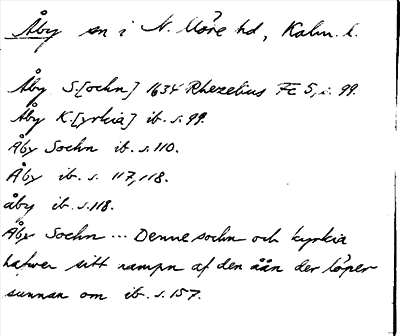 Åby sn i N. Möre hd, Kalm. l.
Åby S.[ochn] 1634 Rhezelius FE 5, s. 99.
Åby K.[yrkia] ib. s. 99.
Åby Sochn ib. s. 110.
Åby ib. s. 117, 118.
åby ib. s. 118.
Åby Sochn ... Denne sochn och kyrkia
hafwer sitt nampn af den åån der löper
sunnan om ib. s. 157.